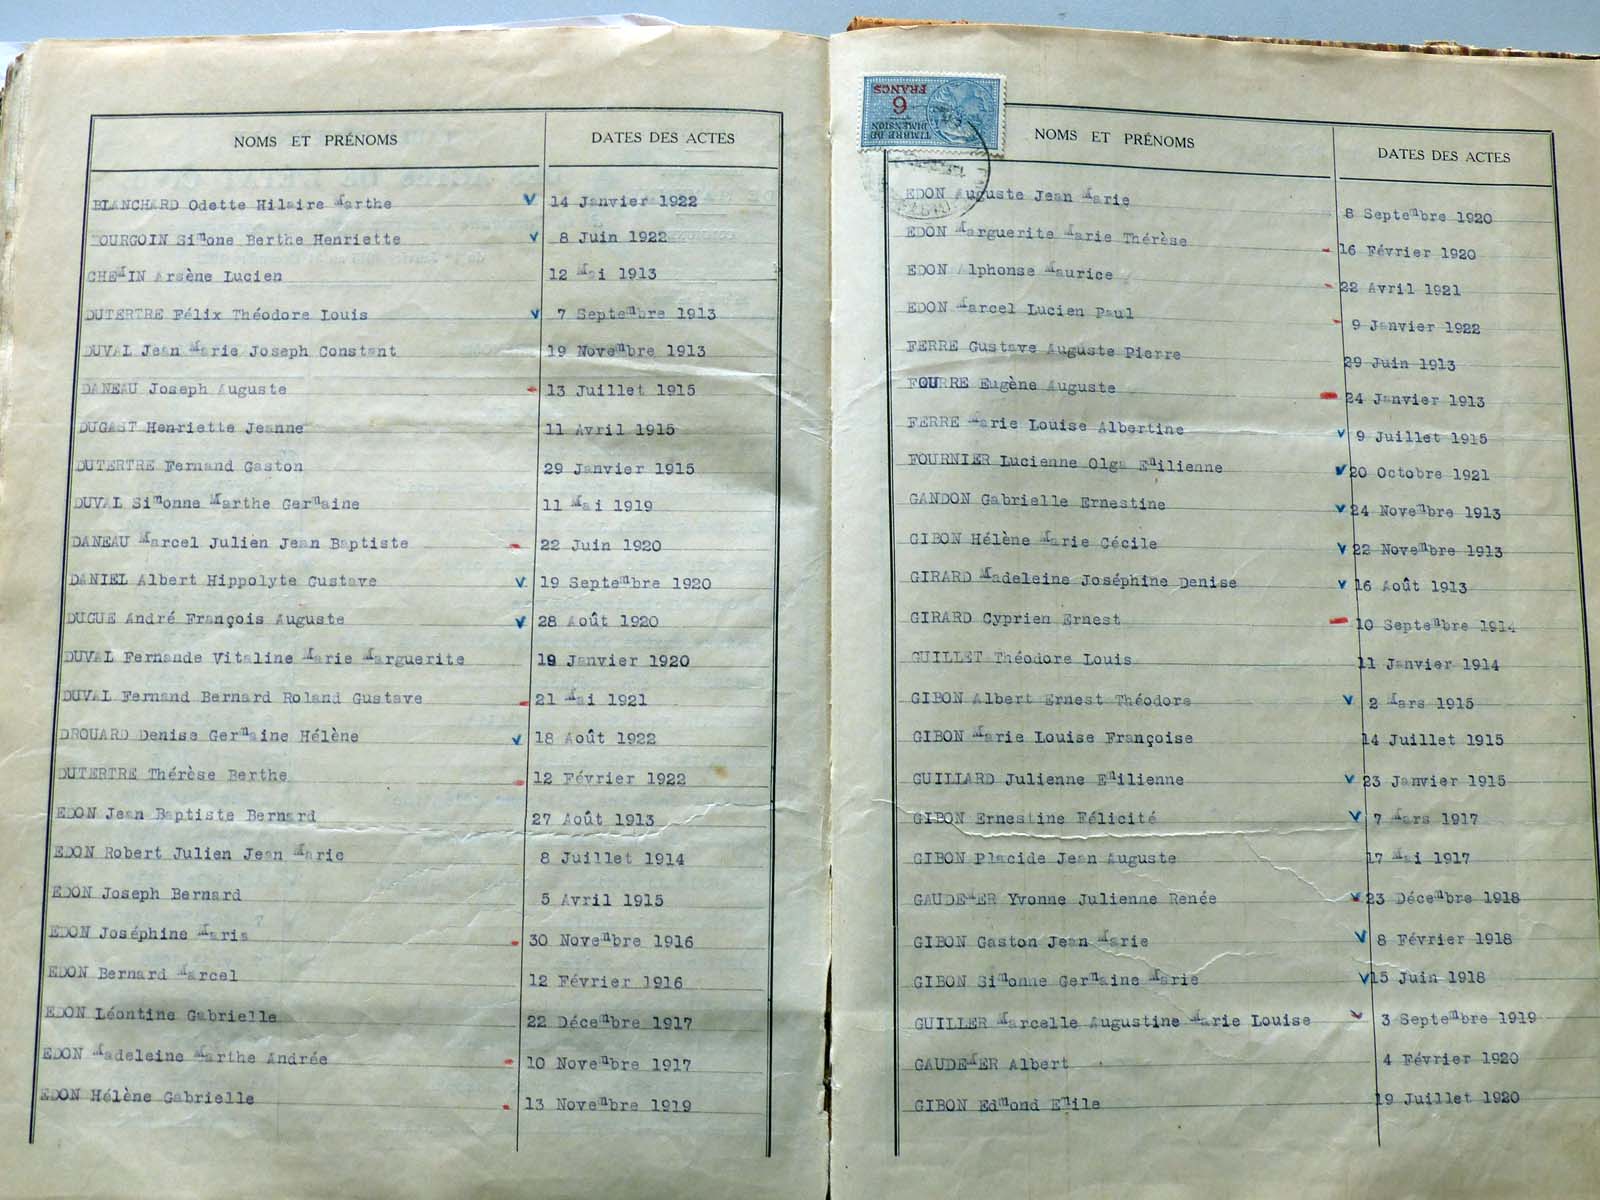 NOMS ET PRÉNOMS
DATES DES ACTES
BLANCHARD Odette Hilaire Marthe V 14 Janvier 1922
BOURGOIN Simone Berthe Henriette V 8 Juin 1922
CHEMIN Arsène Lucien 12 Mai 1913
DUTERTRE Félix Théodore Louis V 7 Septembre 1913
DUVAL Jean Marie Joseph Constant 19 Novembre 1913
DANEAU Joseph Auguste - 13 Juillet 1915
DUGAST Henriette Jeanne 11 Avril 1915
DUTERTRE Fernand Gaston 29 Janvier 1915
DUVAL Simonne Marthe Germaine 11 Mai 1919
DANEAU Marcel Julien Jean Baptiste - 22 Juin 1920
DANIEL Albert Hippolyte Gustave V 19 Septembre 1920
DUGUE André François Auguste V 28 Août 1920
DUVAL Fernande Vitaline Marie Marguerite 19 Janvier 1920
DUVAL Fernand Bernard Roland Gustave - 21 Mai 1921
DROUARD Denise Germaine Hélène V 18 Août 1922
DUTERTRE Thérèse Berthe - 12 Février 1922
EDON Jean Baptiste Bernard 27 Août 1913
EDON Robert Julien Jean Marie 8 Juillet 1914
EDON Joseph Bernard 5 Avril 1915
EDON Joséphine Maria - 30 Novembre 1916
EDON Bernard Marcel 12 Février 1916
EDON Léontine Gabrielle 22 Décembre 1917
EDON Madeleine Marthe Andrée - 10 Novembre 1917
EDON Hélène Gabrielle - 13 Novembre 1919
TIMBRE DE DIMENSION
6 FRANCS
NOMS ET PRÉNOMS
DATES DES ACTES
EDON Auguste Jean Marie 8 Septembre 1920
EDON Marguerite Marie Thérèse - 16 Février 1920
EDON Alphonse Maurice - 22 Avril 1921
EDON Marcel Lucien Paul - 9 Janvier 1922
FERRE Gustave Auguste Pierre 29 Juin 1913
FOURRE Eugène Auguste - 24 Janvier 1913
FERRE Marie Louise Albertine V 9 Juillet 1915
FOURNIER Lucienne Olga Emilienne V 20 Octobre 1921
GANDON Gabrielle Ernestine V 24 Novembre 1913
GIBON Hélène Marie Cécile V 22 Novembre 1913
GIRARD Madeleine Joséphine Denise V 16 Août 1913
GIRARD Cyprien Ernest - 10 Septembre 1914
GUILLET Théodore Louis 11 Janvier 1914
GIBON Albert Ernest Théodore V 2 Mars 1915
GIBON Marie Louise Françoise 14 Juillet 1915
GUILLARD Julienne Emilienne V 23 Janvier 1915
GIBON Ernestine Félicité V 7 Mars 1917
GIBON Placide Jean Auguste 17 Mai 1917
GAUDEMER Yvonne Julienne Renée V 23 Décembre 1918
GIBON Gaston Jean Marie V 8 Février 1918
GIBON Simonne Germaine Marie V 15 Juin 1918
GUILLER Marcelle Augustine Marie Louise V 3 Septembre 1919
GAUDEMER Albert 4 Février 1920
GIBON Edmond Emile 19 Juillet 1920